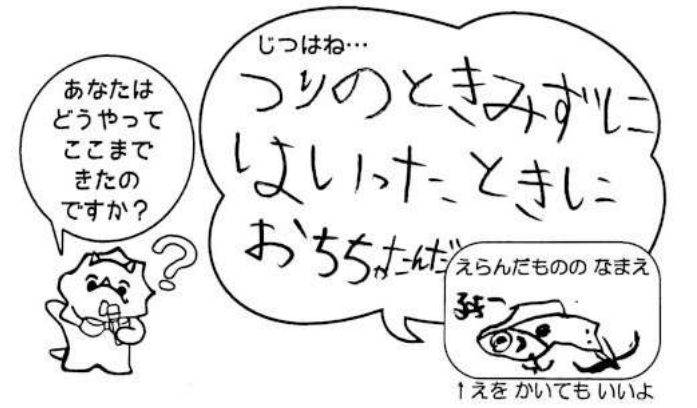 あなたは
どうやって
ここまで
きたの
ですか？
じつはね…
つりのときみずに
はいったときに
おちちゃたんだ
えらんだものの なまえ
↑えを かいても いいよ